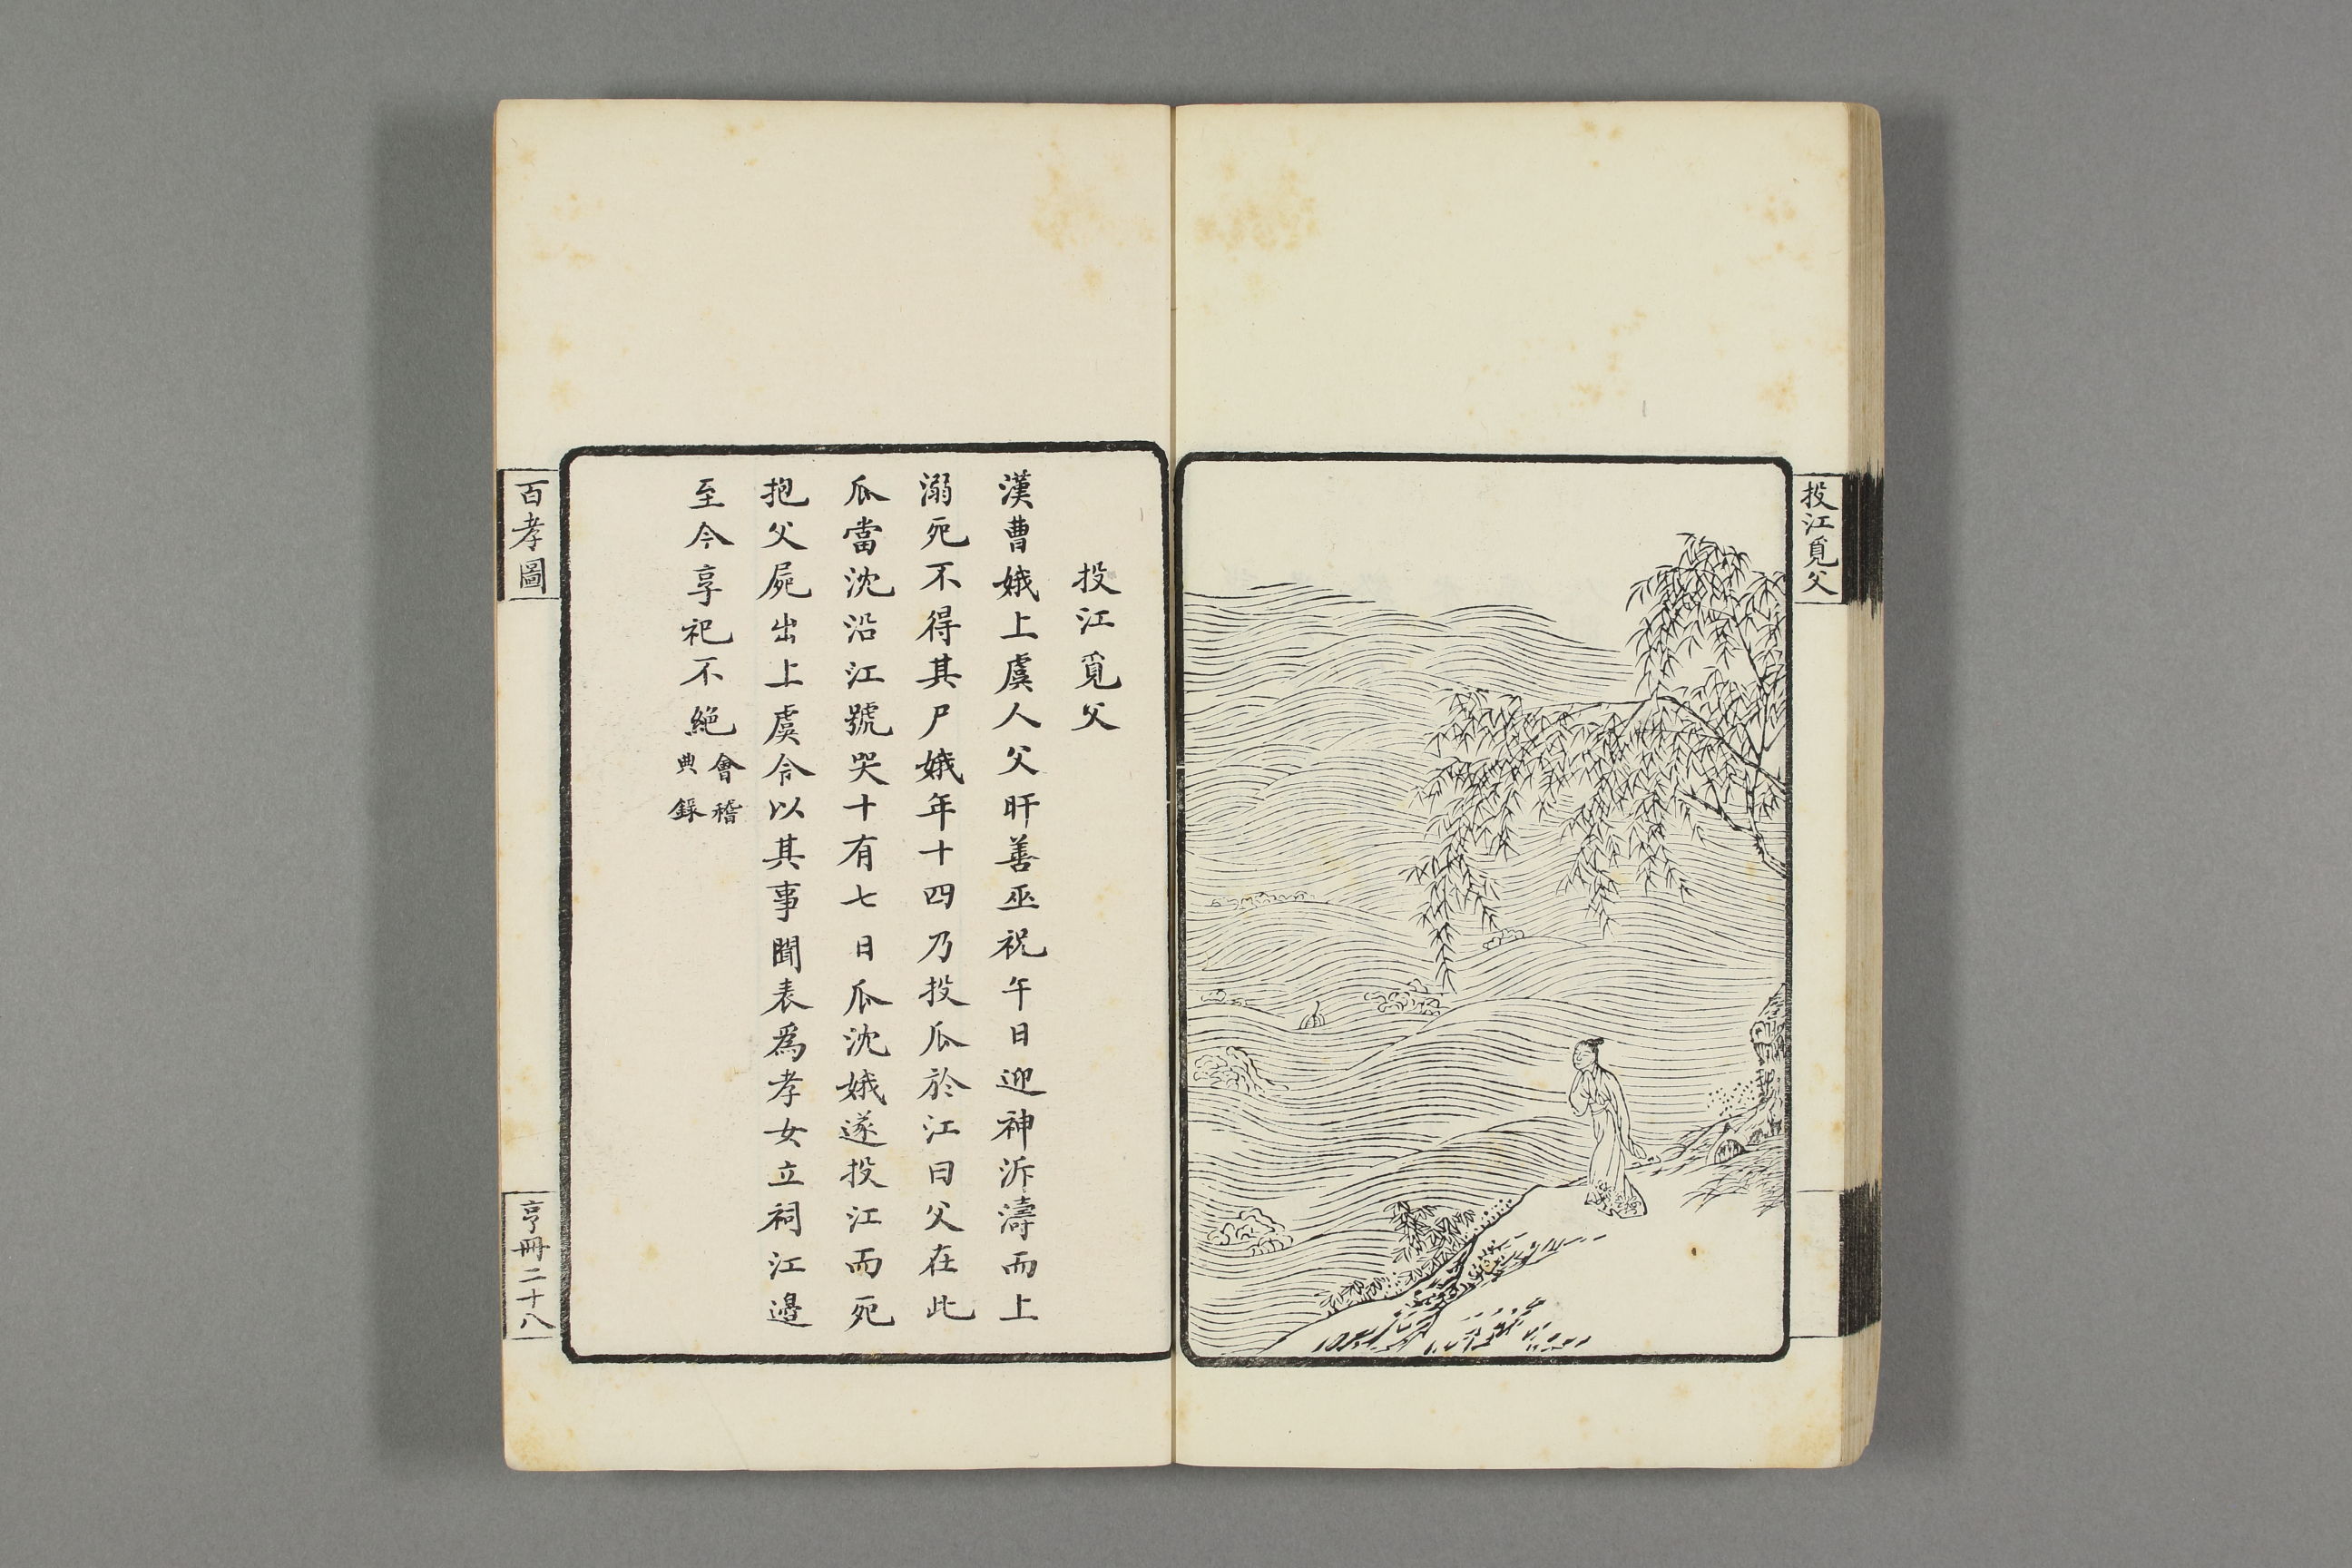 投江覓父
投江覓父
漢曹娥上虞人父盱善巫祝午日迎神泝濤而上
溺死不得其尸娥年十四乃投瓜於江曰父在此
瓜當沈沿江號哭十有七日瓜沈娥遂投江而死
抱父屍出上虞令以其事聞表爲孝女立祠江邊
至今享祀不絶會稽
典錄
百孝圖
亨冊二十八